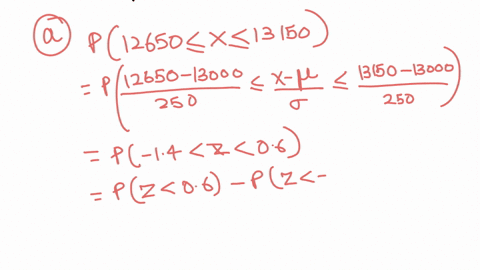 (a) P(12650 ≤ X ≤ 13150)
= P(12650-13000/250 ≤ X-μ/σ ≤ 13150-13000/250)
= P(-1.4 < Z < 0.6)
= P(Z < 0.6) - P(Z < -